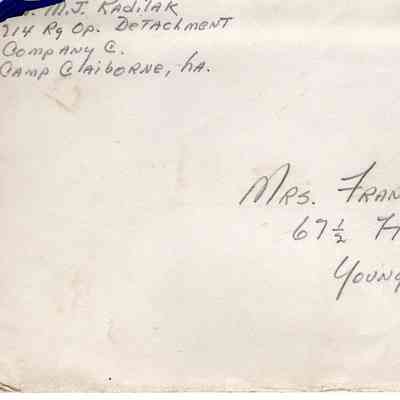 M.J. Kadilak
714 Rg Op. Detachment
Company C.
Camp Claiborne, La.
Mrs. Fran
67½
Young